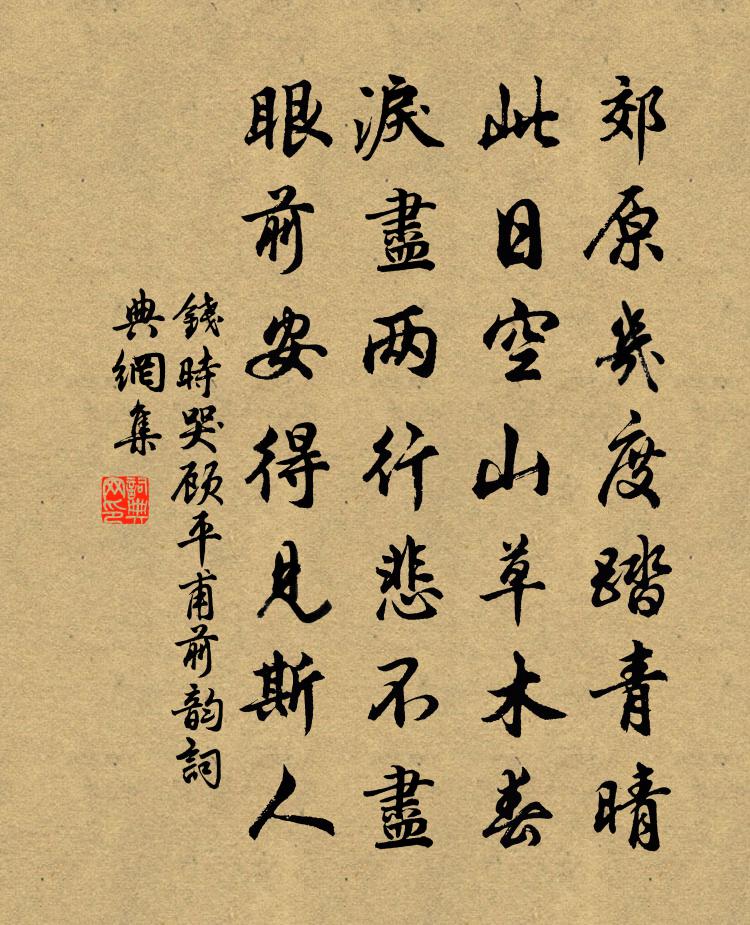 郊原幾度踏青晴
此日空山草木春
淚盡两行悲不盡
眼前安得見斯人
錢時哭顾平甫前韵詞
典網集
詞典
网印